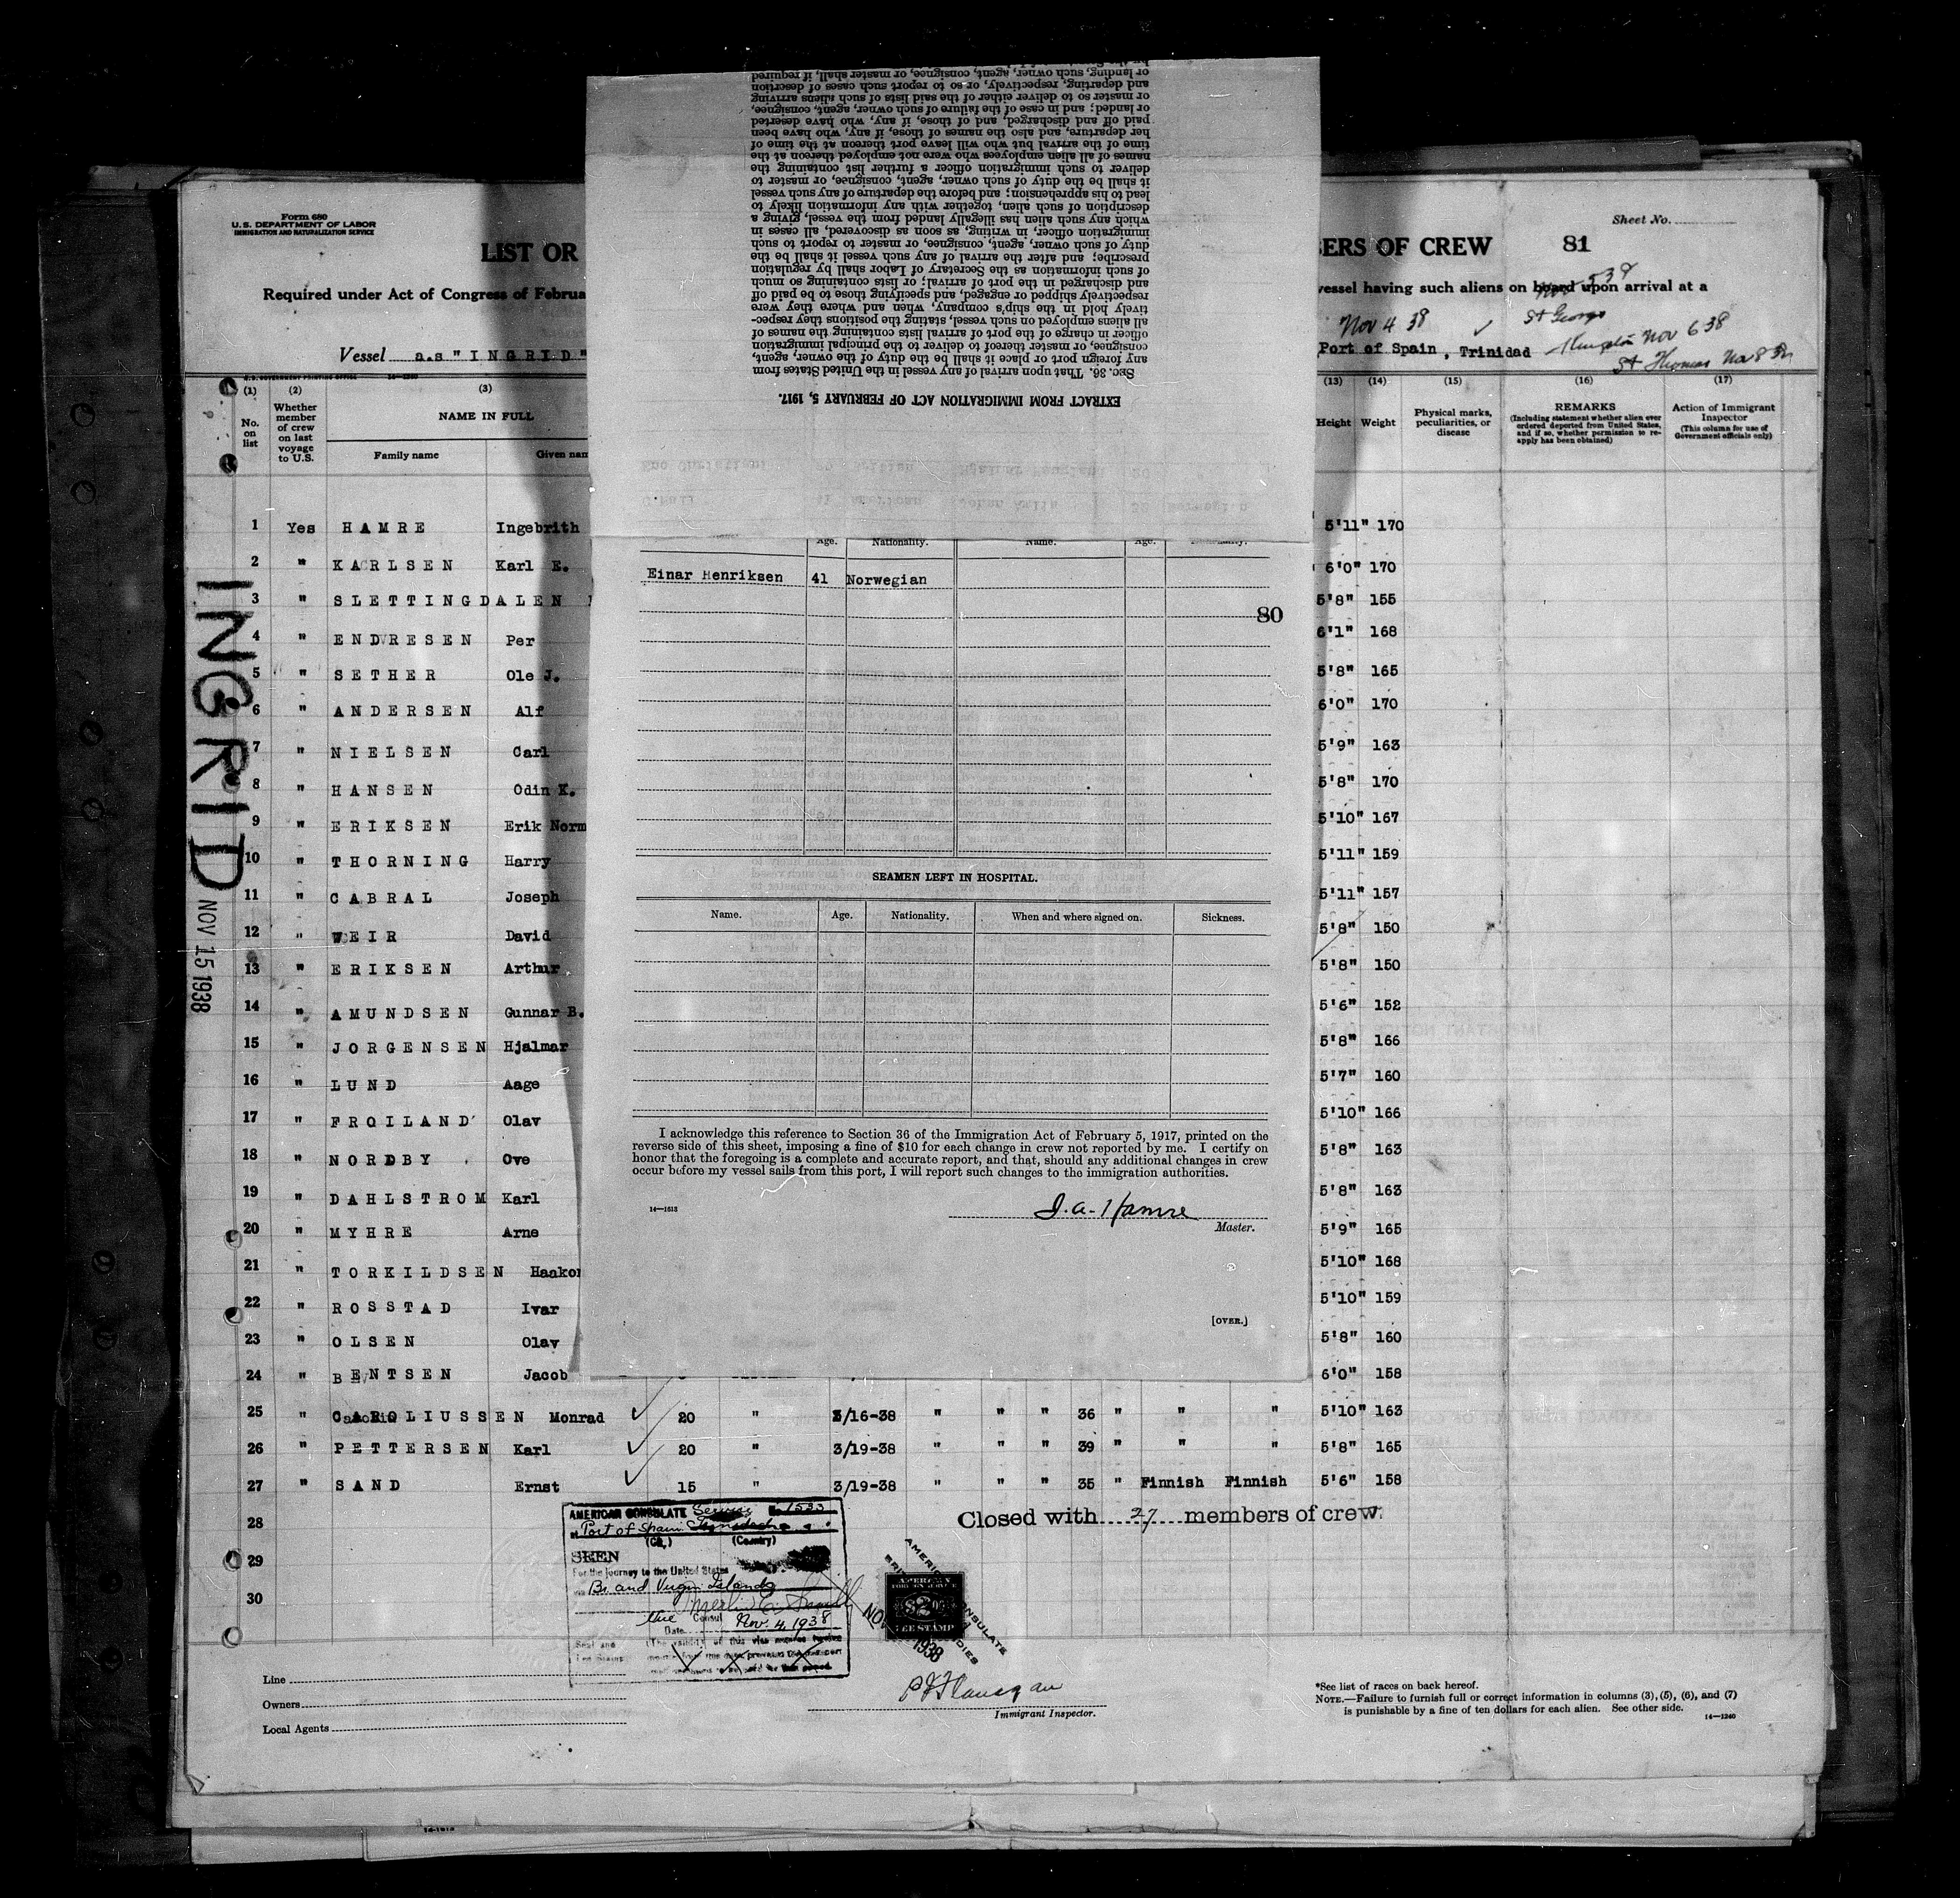 Form 680
U.S. DEPARTMENT OF LABOR
IMMIGRATION AND NATURALIZATION SERVICE
Sheet No.
LIST OR
BERS OF CREW 81
Required under Act of Congress of Februa
vessel having such aliens on board upon arrival at a
Nov 5 38
St George
Nov 4 38
Kingston Nov 6 38
Vessel a.s "INGRID"
Port of Spain, Trinidad
St Thomas Nov 8 38
(1) (2) (3) (13) (14) (15) (16) (17)
No. on list
Whether member of crew on last voyage to U.S.
NAME IN FULL
Family name Given nam
Height Weight
Physical marks, peculiarities, or disease
REMARKS
(Including statement whether alien ever ordered deported from United States, and if so, whether permission to re-apply has been obtained)
Action of Immigrant Inspector
(This column for use of Government officials only)
1 Yes HAMRE Ingebrith 5'11" 170
2 " KARLSEN Karl E. 6'0" 170
3 " SLETTINGDALEN 5'8" 155
4 " ENDRESEN Per 6'1" 168
5 " SETHER Ole J. 5'8" 165
6 " ANDERSEN Alf 6'0" 170
7 " NIELSEN Carl 5'9" 163
8 " HANSEN Odin K. 5'8" 170
9 " ERIKSEN Erik Norm 5'10" 167
10 " THORNING Harry 5'11" 159
11 " CABRAL Joseph 5'11" 157
12 " WEIR David 5'8" 150
13 " ERIKSEN Arthur 5'8" 150
14 " AMUNDSEN Gunnar B. 5'6" 152
15 " JORGENSEN Hjalmar 5'8" 166
16 " LUND Aage 5'7" 160
17 " FROILAND Olav 5'10" 166
18 " NORDBY Ove 5'8" 163
19 " DAHLSTROM Karl 5'8" 163
20 " MYHRE Arne 5'9" 165
21 " TORKILDSEN Haakon 5'10" 168
22 " ROSSTAD Ivar 5'10" 159
23 " OLSEN Olav 5'8" 160
24 " BENTSEN Jacob 6'0" 158
25 " CAROLIUSSEN Monrad 20 " 3/16-38 " " " 36 " " " 5'10" 163
26 " PETTERSEN Karl 20 " 3/19-38 " " " 39 " " " 5'8" 165
27 " SAND Ernst 15 " 3/19-38 " " " 35 " Finnish Finnish 5'6" 158
28
29
30
Closed with 27 members of crew.
INGRID
NOV 15 1938
or landing, such owner, agent, consignee, or master shall, if required
EXTRACT FROM IMMIGRATION ACT OF FEBRUARY 5, 1917.
SEC. 36. That upon arrival of any vessel in the United States from
any foreign port or place it shall be the duty of the owner, agent,
consignee, or master thereof to deliver to the principal immigration
officer in charge of the port of arrival lists containing the names of
all aliens employed on such vessel, stating the positions they respec-
tively hold in the ship's company, when and where they were
respectively shipped or engaged, and specifying those to be paid off
and discharged in the port of arrival; or lists containing so much
of such information as the Secretary of Labor shall by regulation
prescribe; and after the arrival of any such vessel it shall be the
duty of such owner, agent, consignee, or master to report to such
immigration officer, in writing, as soon as discovered, all cases in
which any such alien has illegally landed from the vessel, giving a
description of such alien, together with any information likely to
lead to his apprehension; and before the departure of any such vessel
it shall be the duty of such owner, agent, consignee, or master to
deliver to such immigration officer a further list containing the
names of all alien employees who were not employed thereon at the
time of the arrival but who will leave port thereon at the time of
her departure, and also the names of those, if any, who have been
paid off and discharged, and of those, if any, who have deserted
or landed; and in case of the failure of such owner, agent, consignee,
or master so to deliver either of the said lists of such aliens arriving
and departing, respectively, or so to report such cases of desertion
Age. Nationality. Name. Age.
Einar Henriksen 41 Norwegian
80
SEAMEN LEFT IN HOSPITAL.
Name. Age. Nationality. When and where signed on. Sickness.
I acknowledge this reference to Section 36 of the Immigration Act of February 5, 1917, printed on the
reverse side of this sheet, imposing a fine of $10 for each change in crew not reported by me. I certify on
honor that the foregoing is a complete and accurate report, and that, should any additional changes in crew
occur before my vessel sails from this port, I will report such changes to the immigration authorities.
I.a. Hamre
14—1613
Master.
[OVER.]
AMERICAN CONSULATE Service No 1533
at Port of Spain Trinidad
(City) (Country)
SEEN
For the journey to the United States
via Br. and Virgin Islands
Vice Consul
Date Nov. 4, 1938
AMERICAN
FOREIGN SERVICE
$2
FEE STAMP
AMERICAN CONSULATE
1938
Line
Owners
Local Agents
P J Flanagan
Immigrant Inspector.
*See list of races on back hereof.
NOTE.—Failure to furnish full or correct information in columns (3), (5), (6), and (7)
is punishable by a fine of ten dollars for each alien. See other side.
14—1240